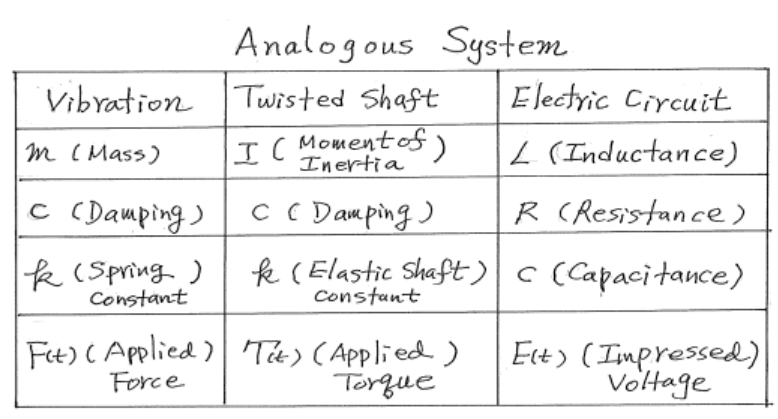 Analogous System
Vibration Twisted Shaft Electric Circuit
m (Mass) I (Moment of Inertia) L (Inductance)
C (Damping) C (Damping) R (Resistance)
k (Spring Constant) k (Elastic Shaft Constant) C (Capacitance)
F(t) (Applied Force) T(t) (Applied Torque) E(t) (Impressed Voltage)